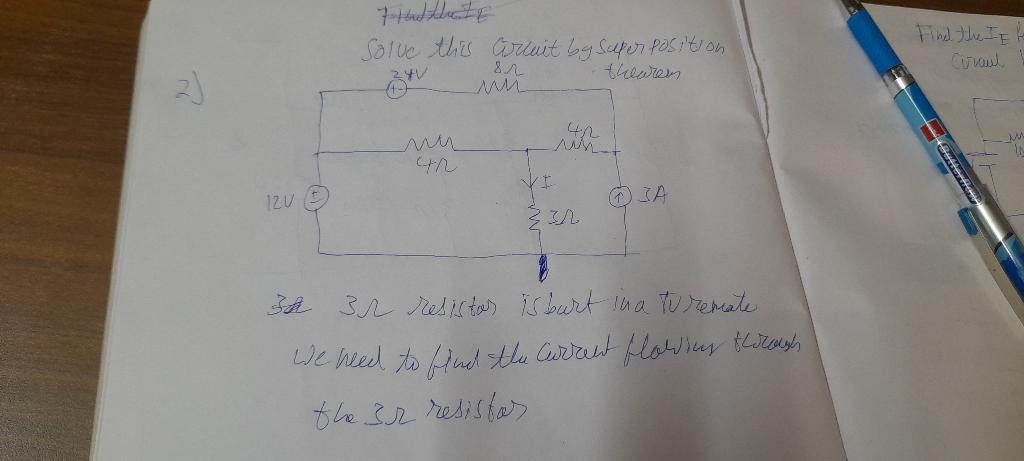 Find the IE
Solve this Circuit by Super position
theorem
2)
24V
8Ω
+
4Ω
4Ω
I
12V
3Ω
3A
3Ω resistor is burt in a TV remote
We need to find the Current flowing through
the 3Ω resistor
Find the IE
Circuit